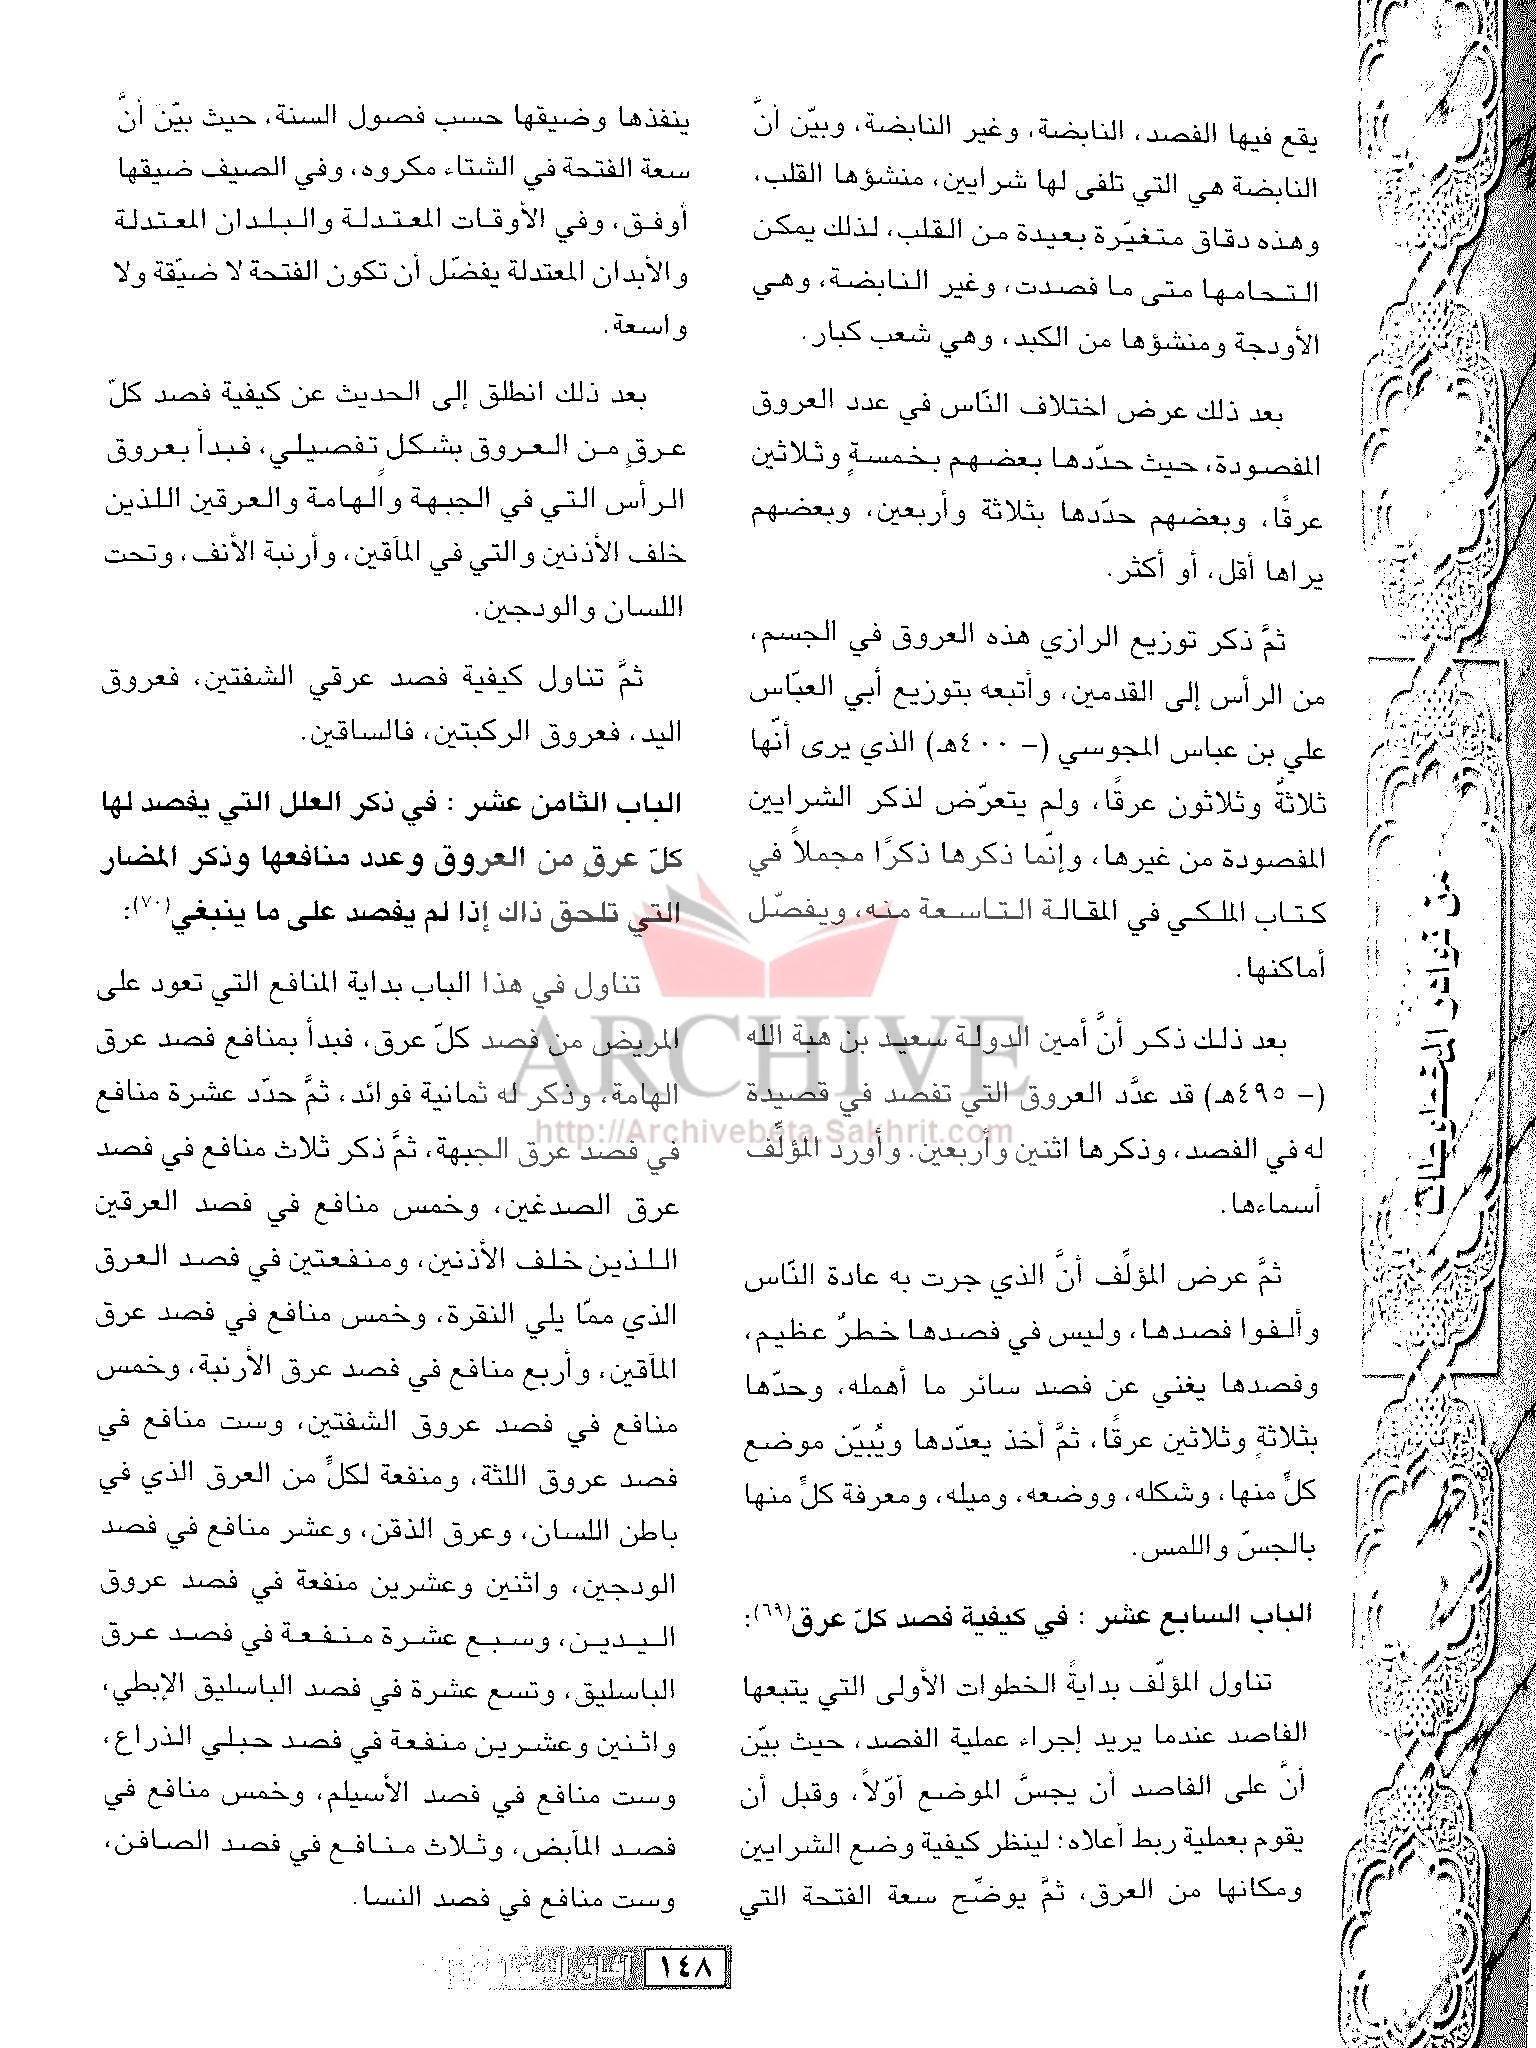 يقع فيها الفصد، النابضة، وغير النابضة، وبيّن أنَّ
النابضة هي التي تلفى لها شرايين، منشؤها القلب،
وهذه دقاق متغيّرة بعيدة من القلب، لذلك يمكن
التحامها متى ما فصدت، وغير النابضة، وهي
الأودجة ومنشؤها من الكبد، وهي شعب كبار.
بعد ذلك عرض اختلاف النّاس في عدد العروق
المفصودة، حيث حدّدها بعضهم بخمسةٍ وثلاثين
عرقًا، وبعضهم حدّدها بثلاثة وأربعين، وبعضهم
يراها أقل، أو أكثر.
ثمَّ ذكر توزيع الرازي هذه العروق في الجسم،
من الرأس إلى القدمين، وأتبعه بتوزيع أبي العبّاس
علي بن عباس المجوسي (- ٤٠٠هـ) الذي يرى أنّها
ثلاثةٌ وثلاثون عرقًا، ولم يتعرّض لذكر الشرايين
المفصودة من غيرها، وإنّما ذكرها ذكرًا مجملاً في
كتاب الملكي في المقالة التاسعة منه، ويفصّل
أماكنها.
بعد ذلك ذكر أنَّ أمين الدولة سعيد بن هبة الله
(- ٤٩٥هـ) قد عدَّد العروق التي تفصد في قصيدة
له في الفصد، وذكرها اثنين وأربعين. وأورد المؤلِّف
أسماءها.
ثمَّ عرض المؤلِّف أنَّ الذي جرت به عادة النّاس
وألفوا فصدها، وليس في فصدها خطرٌ عظيم،
وفصدها يغني عن فصد سائر ما أهمله، وحدّها
بثلاثةٍ وثلاثين عرقًا، ثمَّ أخذ يعدّدها ويُبيّن موضع
كلٍّ منها، وشكله، ووضعه، وميله، ومعرفة كلٍّ منها
بالجسّ واللمس.
الباب السابع عشر : في كيفية فصد كلّ عرق(٦٩):
تناول المؤلّف بدايةً الخطوات الأولى التي يتبعها
الفاصد عندما يريد إجراء عملية الفصد، حيث بيّن
أنَّ على الفاصد أن يجسَّ الموضع أوّلاً، وقبل أن
يقوم بعملية ربط أعلاه؛ لينظر كيفية وضع الشرايين
ومكانها من العرق، ثمَّ يوضّح سعة الفتحة التي
ينفذها وضيقها حسب فصول السنة، حيث بيّن أنَّ
سعة الفتحة في الشتاء مكروه، وفي الصيف ضيقها
أوفق، وفي الأوقات المعتدلة والبلدان المعتدلة
والأبدان المعتدلة يفضّل أن تكون الفتحة لا ضيّقة ولا
واسعة.
بعد ذلك انطلق إلى الحديث عن كيفية فصد كلّ
عرقٍ من العروق بشكلٍ تفصيلي، فبدأ بعروق
الرأس التي في الجبهة والهامة والعرقين اللذين
خلف الأذنين والتي في المآقين، وأرنبة الأنف، وتحت
اللسان والودجين.
ثمَّ تناول كيفية فصد عرقي الشفتين، فعروق
اليد، فعروق الركبتين، فالساقين.
الباب الثامن عشر : في ذكر العلل التي يفصد لها
كلّ عرقٍ من العروق وعدد منافعها وذكر المضار
التي تلحق ذاك إذا لم يفصد على ما ينبغي(٧٠):
تناول في هذا الباب بداية المنافع التي تعود على
المريض من فصد كلّ عرق، فبدأ بمنافع فصد عرق
الهامة، وذكر له ثمانية فوائد، ثمَّ حدّد عشرة منافع
في فصد عرق الجبهة، ثمَّ ذكر ثلاث منافع في فصد
عرق الصدغين، وخمس منافع في فصد العرقين
اللذين خلف الأذنين، ومنفعتين في فصد العرق
الذي ممّا يلي النقرة، وخمس منافع في فصد عرق
المآقين، وأربع منافع في فصد عرق الأرنبة، وخمس
منافع في فصد عروق الشفتين، وست منافع في
فصد عروق اللثة، ومنفعة لكلٍّ من العرق الذي في
باطن اللسان، وعرق الذقن، وعشر منافع في فصد
الودجين، واثنين وعشرين منفعة في فصد عروق
اليدين، وسبع عشرة منفعة في فصد عرق
الباسليق، وتسع عشرة في فصد الباسليق الإبطي،
واثنين وعشرين منفعة في فصد حبلي الذراع،
وست منافع في فصد الأسيلم، وخمس منافع في
فصد المأبض، وثلاث منافع في فصد الصافن،
وست منافع في فصد النسا.
ARCHIVE
http://Archivebeta.Sakhrit.com
من نوادر المخطوطات
١٤٨